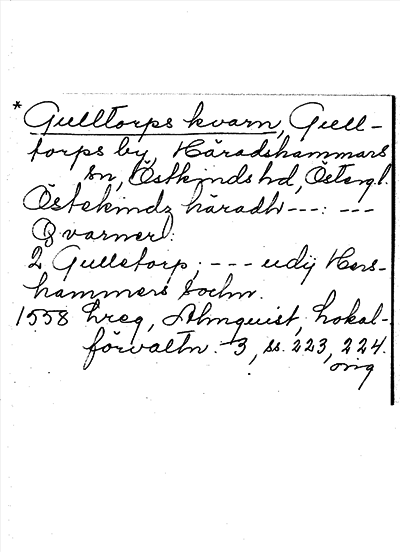 * Gulltorps kvarn, Gull-
torps by, Häradshammars
sn, Östkinds hd, Östergl.
Östekindz häradh ---: ---
Qvarner:
2 Gulletorp; --- udij Hers-
hammers Sochn.
1558 hreg, Almquist, Lokal-
förvaltn. 3, ss. 223, 224.
orig